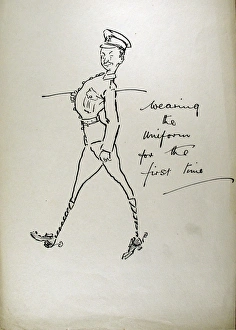 wearing
the
uniform
for the
first time